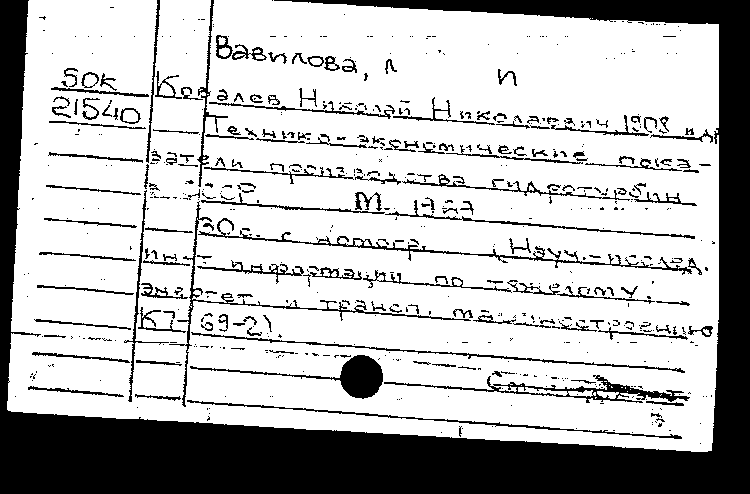 Вавилова, Л П
50к Ковалев, Николай Николаевич, 1908 и др
21540 Технико-экономические пока-
затели производства гидротурбин
в СССР. М.,
30с. с номогр. (Науч.-исслед.
ин-т информации по тяжелому,
энергет. и трансп. машиностроению
К7-69-2).
3